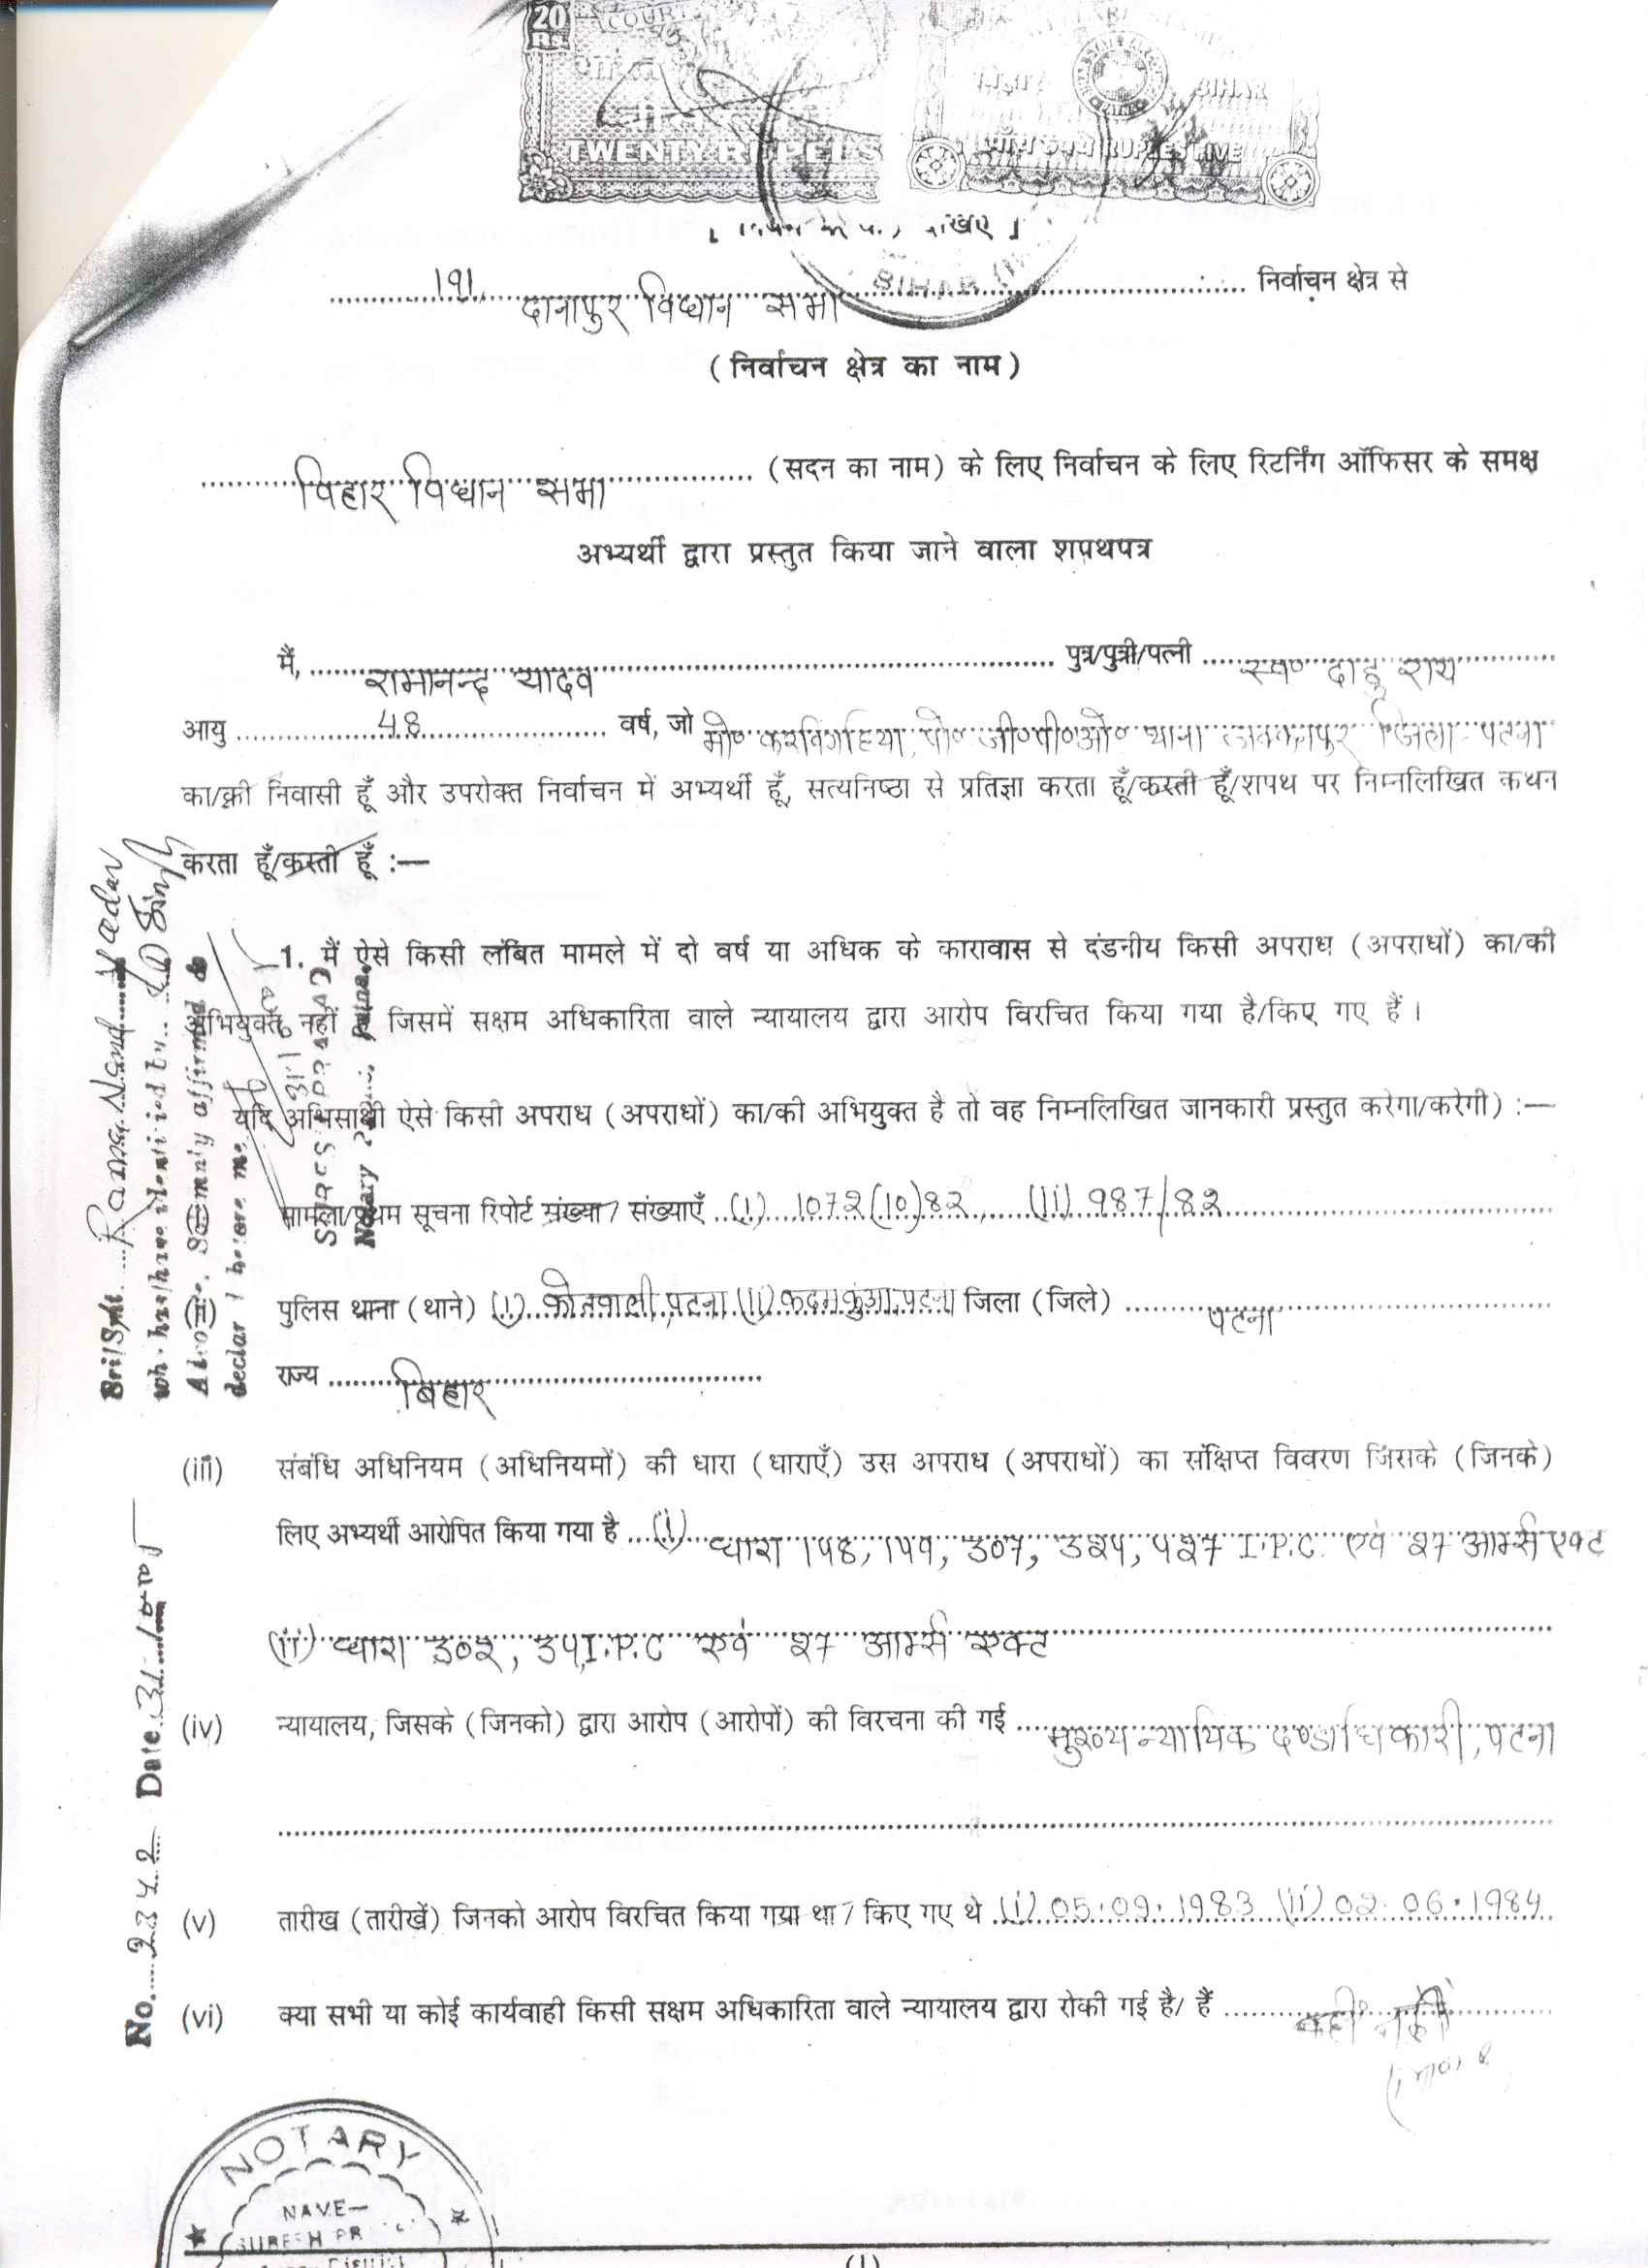 20 COURT
Rs.
भारत
BIHAR
TWENTY RUPEES
पाँच रुपये RUPEES FIVE
BIHAR
191, दानापुर विधान सभा निर्वाचन क्षेत्र से
(निर्वाचन क्षेत्र का नाम)
बिहार विधान सभा (सदन का नाम) के लिए निर्वाचन के लिए रिटर्निंग ऑफिसर के समक्ष
अभ्यर्थी द्वारा प्रस्तुत किया जाने वाला शपथपत्र
मैं, रामानन्द यादव पुत्र/पुत्री/पत्नी स्व० दाहु राय
आयु 48 वर्ष, जो मो० पो० जी०पी०ओ० थाना जिला पटना
का/की निवासी हूँ और उपरोक्त निर्वाचन में अभ्यर्थी हूँ, सत्यनिष्ठा से प्रतिज्ञा करता हूँ/करती हूँ/शपथ पर निम्नलिखित कथन
करता हूँ/करती हूँ :—
1. मैं ऐसे किसी लंबित मामले में दो वर्ष या अधिक के कारावास से दंडनीय किसी अपराध (अपराधों) का/की
अभियुक्त नहीं हूँ जिसमें सक्षम अधिकारिता वाले न्यायालय द्वारा आरोप विरचित किया गया है/किए गए हैं।
यदि अभिसाक्षी ऐसे किसी अपराध (अपराधों) का/की अभियुक्त है तो वह निम्नलिखित जानकारी प्रस्तुत करेगा/करेगी) :—
मामला/प्रथम सूचना रिपोर्ट संख्या / संख्याएँ (i) 1072(10)82, (ii) 987/82
(ii) पुलिस थाना (थाने) (i) कोतवाली, पटना (ii) कदमकुंआ, पटना जिला (जिले) पटना
राज्य बिहार
(iii) संबंधि अधिनियम (अधिनियमों) की धारा (धाराएँ) उस अपराध (अपराधों) का संक्षिप्त विवरण जिसके (जिनके)
लिए अभ्यर्थी आरोपित किया गया है (i) धारा १४8, १४९, ३०७, ३२४, ४२७ I.P.C. एवं २७ आर्म्स एक्ट
(ii) धारा ३०२, ३४ I.P.C एवं २७ आर्म्स एक्ट
(iv) न्यायालय, जिसके (जिनको) द्वारा आरोप (आरोपों) की विरचना की गई मुख्य न्यायिक दण्डाधिकारी, पटना
(v) तारीख (तारीखें) जिनको आरोप विरचित किया गया था / किए गए थे (i) 05.09.1983 (ii) 02.06.1984
(vi) क्या सभी या कोई कार्यवाही किसी सक्षम अधिकारिता वाले न्यायालय द्वारा रोकी गई है/ हैं नहीं
Sri/Smt. Rama Nand Yadav
who has/have identified by Singh
Above, Solemnly affirmed &
declar before me
SURESH PRASAD
Notary Patna.
No. 2342 Date 31
NOTARY
NAVE—
SURESH PR
(1)